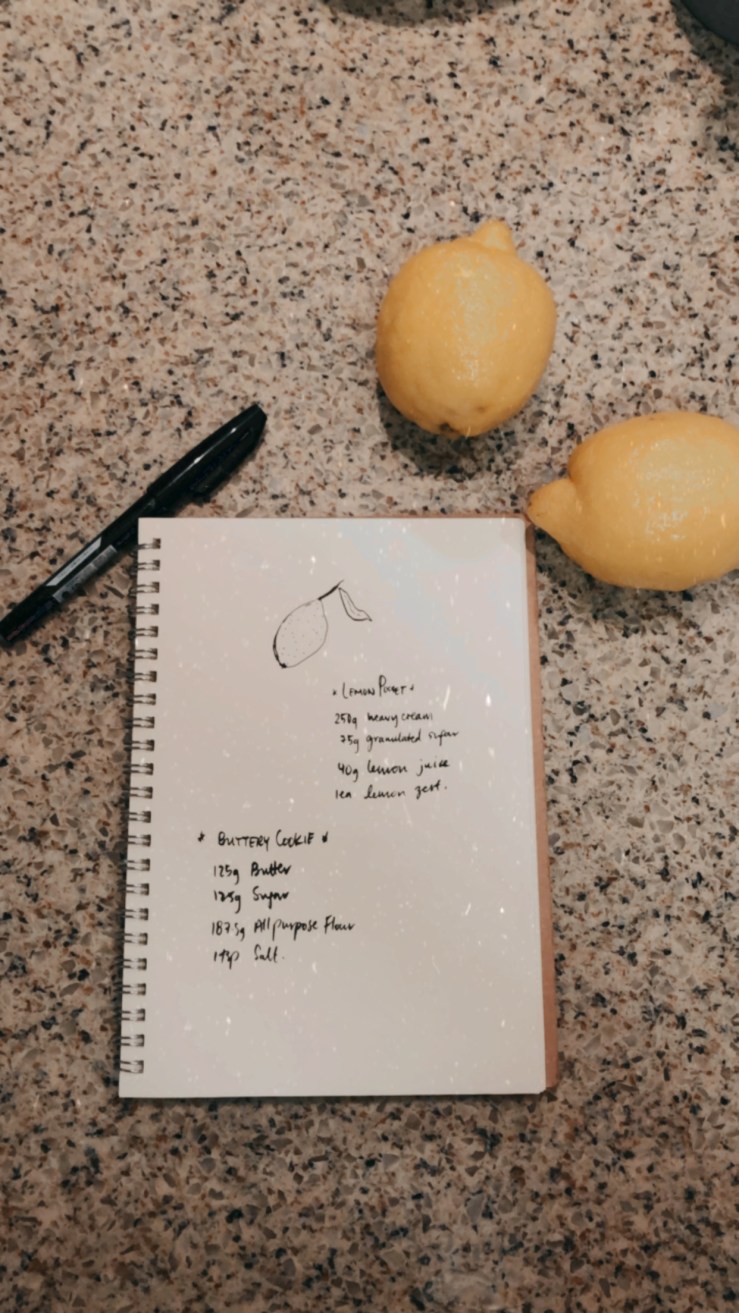 * LEMON POSSET *
250g heavy cream
75g granulated sugar
40g lemon juice
1ea lemon zest.
* BUTTERY COOKIE *
125g Butter
125g Sugar
187.5g All purpose Flour
1tsp Salt.